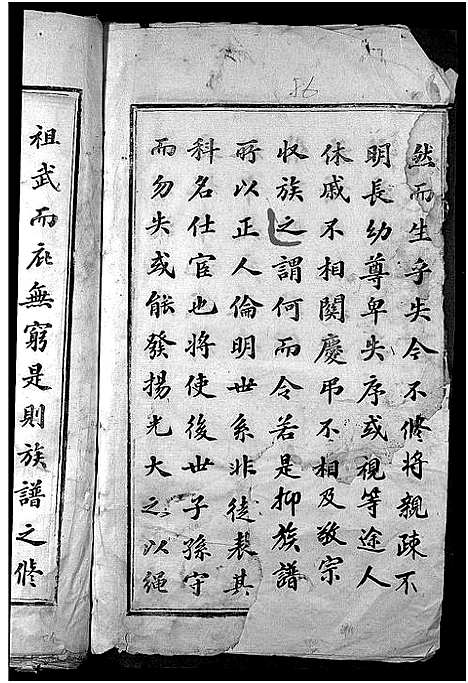 56
然而生乎失今不修將親疎不
明長幼尊卑失序或視等途人
休戚不相關慶弔不相及敬宗
收族之謂何而令若是抑族譜
所以正人倫明世系非徒表其
科名仕宦也將使後世子孫守
而勿失或能發揚光大之以繩
祖武而庇無窮是則族譜之修